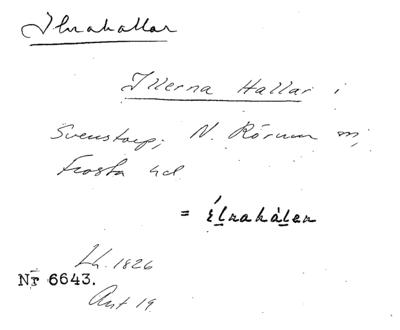 Ilnahallar
Illerna Hallar i
Svenstorp; N. Rörum sn,
Frosta hd
= élnahálen
Lh. 1826
Nr 6643.
Akt 19.